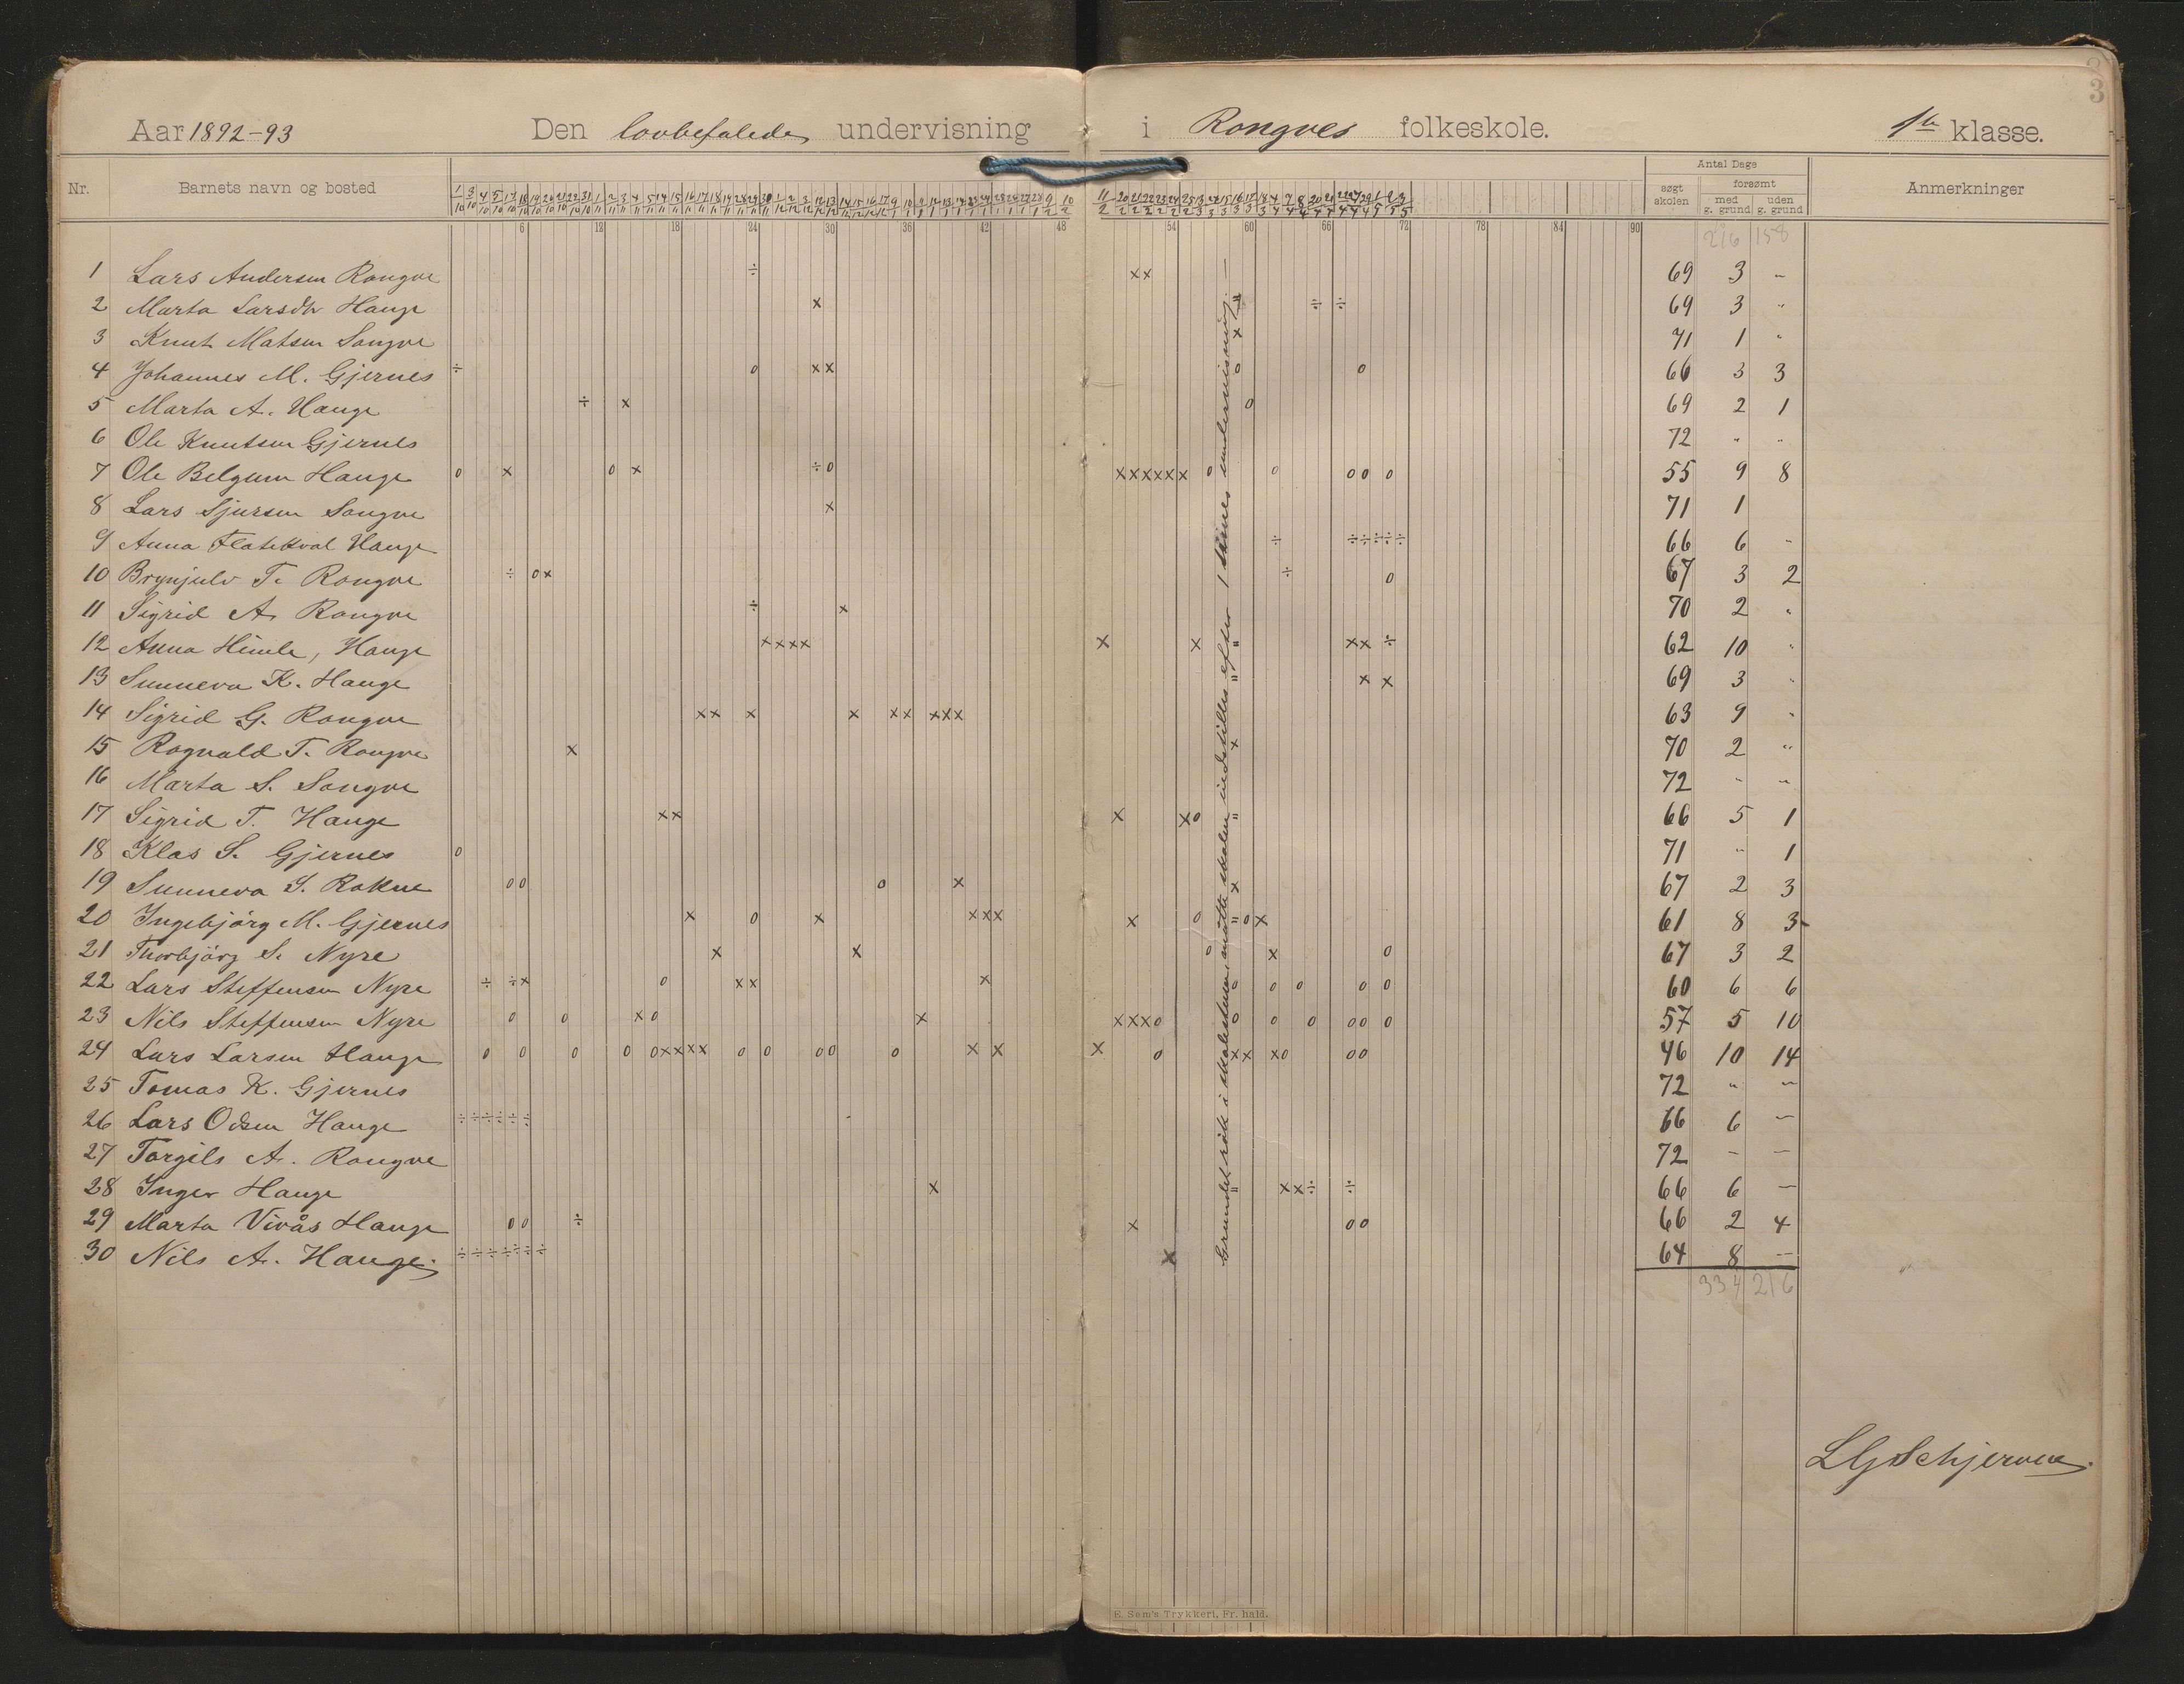 3
Aar 1892-93 Den lovbefalede undervisning i Rongves folkeskole. 1ste klasse.
Nr. Barnets navn og bosted Antal Dage søgt skolen forsømt med g. grund uden g. grund Anmerkninger
6 12 18 24 30 36 42 48 54 60 66 72 78 84 90
216 158
1 Lars Andersen Rongve ÷ x x 69 3 -
2 Marta Larsdtr Hauge x = ÷ ÷ 69 3 "
3 Knut Matsen Songve x 71 1 "
4 Johannes M. Gjernes ÷ o x x o o 66 3 3
5 Marta A. Hauge ÷ x o 69 2 1
6 Ole Knutsen Gjernes 72 " "
7 Ole Belgum Hauge o x o x ÷ o x x x x x x o o o o o 55 9 8
8 Lars Sjursen Songve x 71 1
9 Anna Hauge ÷ ÷ ÷ ÷ ÷ ÷ 66 6 -
10 Brynjulv T. Rongve ÷ o x ÷ o 67 3 2
11 Sigrid A. Rongve ÷ x 70 2 "
12 Anna Himle, Hauge x x x x x x = x x ÷ 62 10 "
13 Sunneva K. Hauge = x x 69 3 "
14 Sigrid G. Rongve x x x x x x x x x 63 9 "
15 Rognald T. Rongve x x 70 2 "
16 Marta S. Songve 72 - -
17 Sigrid T. Hauge x x x x o = 66 5 1
18 Klas S. Gjernes o 71 " 1
19 Sunneva S. Rokne o o o x x 67 2 3
20 Ingebjörg M. Gjernes x o x x x x x o = o x 61 8 3
21 Thorbjörg S. Nyre x x o x o 67 3 2
22 Lars Steffensen Nyre ÷ ÷ x o x x x o o o o o 60 6 6
23 Nils Steffensen Nyre o o x o x x x x o o o o o o o 57 5 10
24 Lars Larsen Hauge o o o o o x x x x o o o o o x x x o x x x o o o 46 10 14
25 Tomas K. Gjernes 72 " "
26 Lars Odsen Hauge ÷ ÷ ÷ ÷ ÷ ÷ 66 6 -
27 Torgils A. Rongve 72 - -
28 Inger Hauge x = x x ÷ ÷ 66 6 -
29 Marta Vivås Hauge o o ÷ x o o 66 2 4
30 Nils A. Hauge. ÷ ÷ ÷ ÷ ÷ ÷ ÷ x 64 8 -
334 216
Grundet røk i skolestuen måtte skolen indstilles efter 1 times undervisning. -
LGSchjerven.
E. Sem's Trykkeri, Fr. hald.